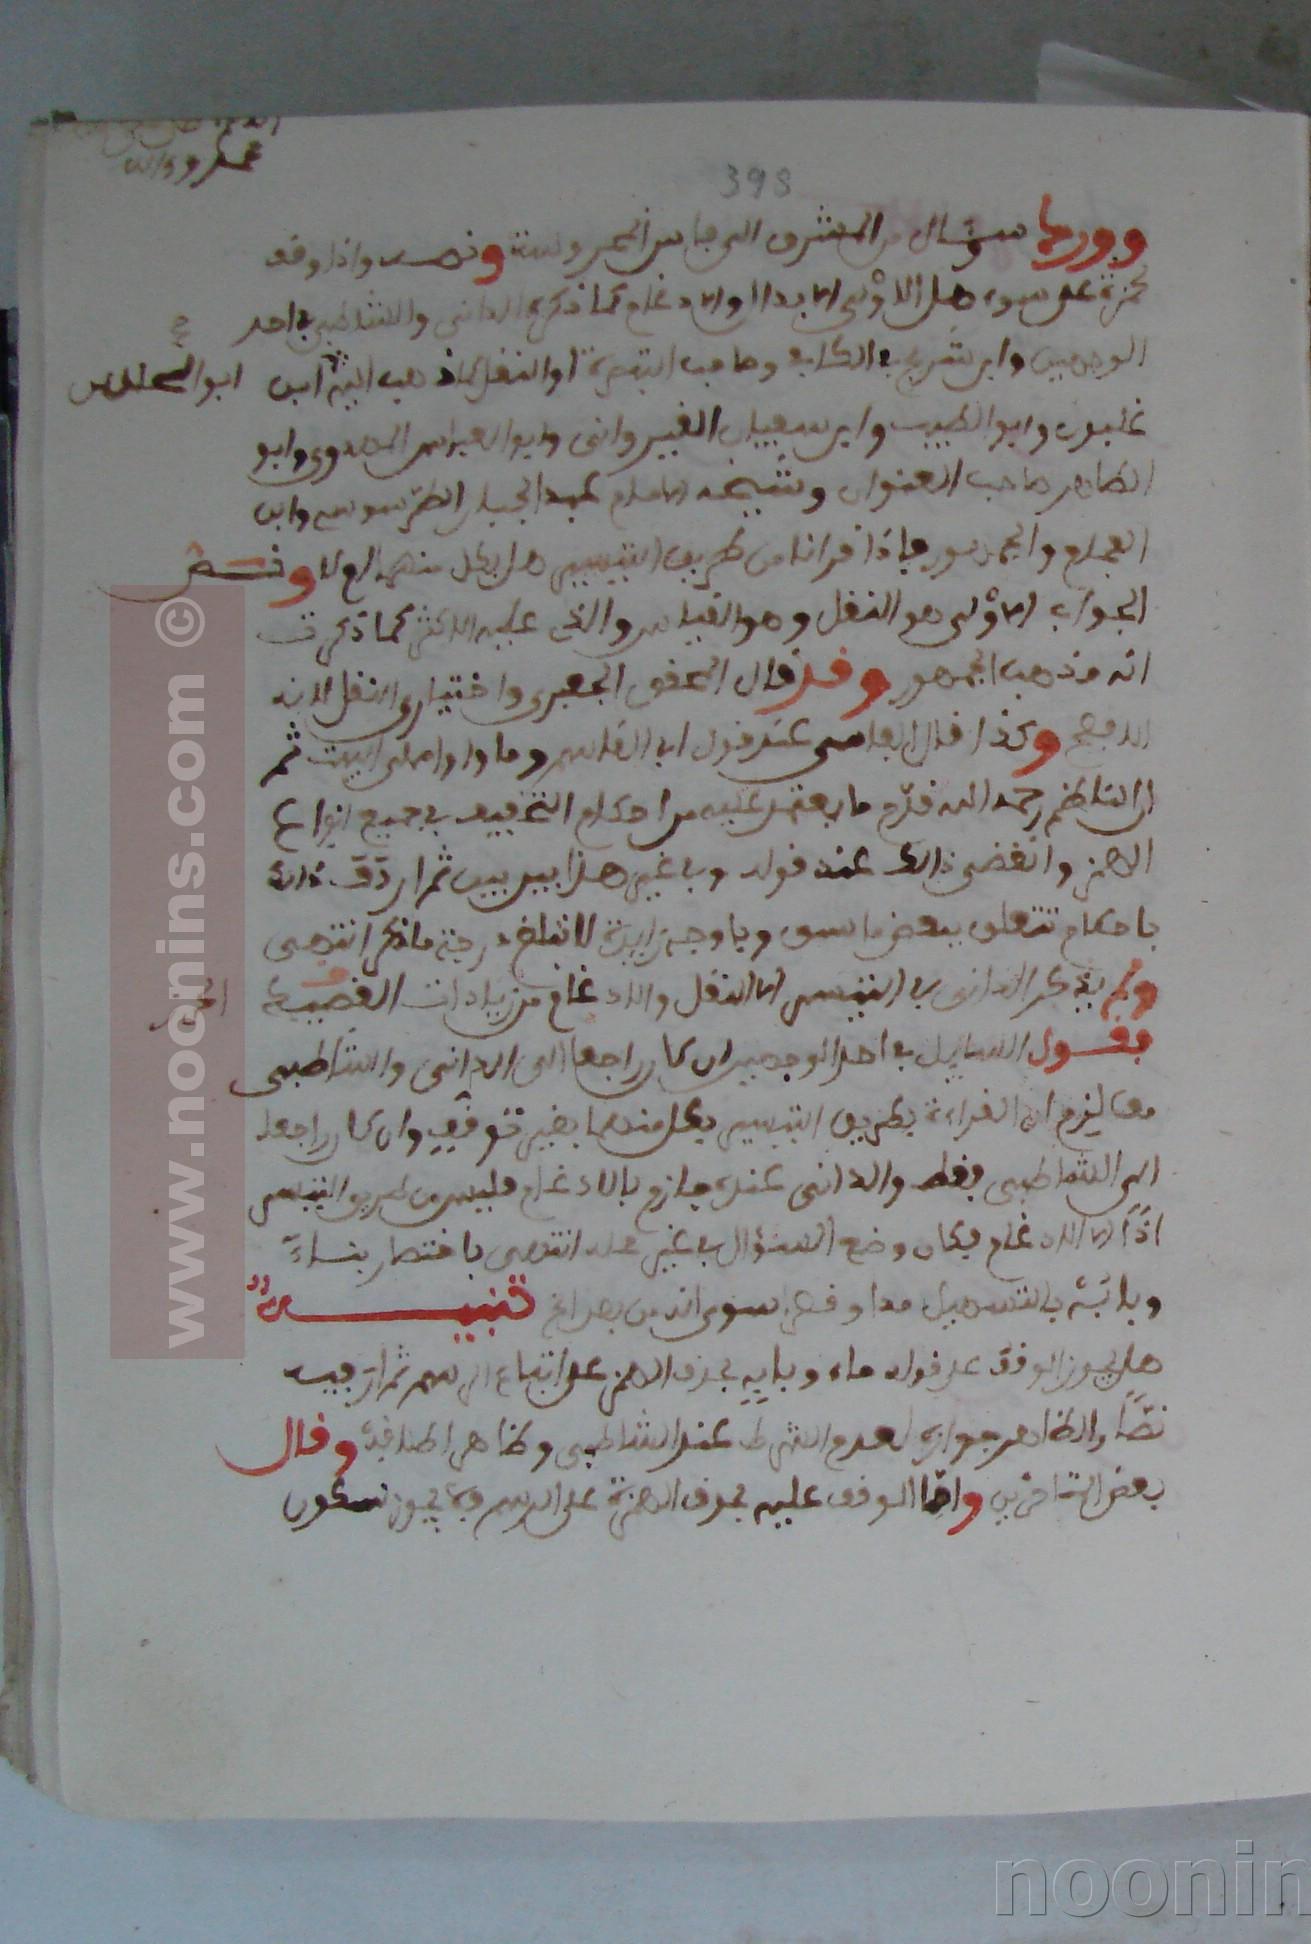 398
وورد سؤال من المشرق الى فاس المحروسة ونصه واذا وقف
لحمزة على سوء هل الاولى الابدال والادغام كما ذكره الدانى والشاطبى في احد
الوجهين وابن شريح في الكافي وصاحب التبصرة او النقل كما ذهب اليه ابن
ابو الحسن
غلبون وابو الطيب وابن سفيان القيروانى وابو العباس المهدوى وابو
الطاهر صاحب العنوان وشيخه الامام عبد الجبار الطرسوسي وابن
الفحام والجمهور فاذا قرانا من طريق التيسير هل بكل منهما ام لا ونص
الجواب الاولى هو النقل وهو القياس والذى عليه الاكثر كما ذكرت
انه مذهب الجمهور وقد قال المحقق الجعبرى واختيارى النقل لانه
الافصح وكذا قال الفاسى عند قول ابى القاسم وما واو اصلى البيت ثم
ان الناظم رحمه الله قدم ما يعتمد عليه من احكام التخفيف في جميع انواع
الهمز وانقضى ذلك عند قوله وفي غير هذا بين بين ثم اردف ذلك
باحكام تتعلق ببعض ما سبق وباوجه زايدة لا تبلغ درجة ما ذكر انتهى
ولم يذكر الدانى في التيسير الا النقل والادغام من زيادات القصيد
فقول السايل في احد الوجهين ان كان راجعا الى الدانى والشاطبى
معا لزم ان القراءة بطريق التيسير بكل منهما بغير توقف وان كان راجعا
الى الشاطبى فقط والدانى عنده جازم بالادغام فليس من طريق التيسير
اذا الا الادغام فكان وضع السؤال في غير محله انتهى باختصار بناء
وبابه بالتسهيل مدا وقصر سوى انه من بعد الخ تنبيه
هل يجوز الوقف على قوله ماء وبابه بحذف الهمز على اتباع الرسم لم ار فيه
نصا والظاهر جوازه لعدم الشرط عند الشاطبى وظاهر اطلاقه وقال
بعض المتاخرين واما الوقف عليه بحذف الهمزة على الرسم فلا يجوز سكون